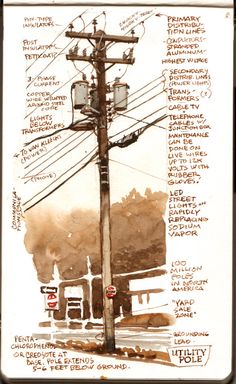 PIN-TYPE
INSULATORS
POST
INSULATORS
PETTICOAT
3-PHASE
CURRENT
COPPER
WIRE WRAPPED
AROUND STEEL
CORE
LIGHTS
BELOW
TRANSFORMERS
(POWER)
(PHONE)
PENTA-
CHLOROPHENOL
OR CREOSOTE AT
BASE. POLE EXTENDS
5-6 FEET BELOW GROUND.
PRIMARY
DISTRIBU-
TION LINES
CONDUCTORS-
STRANDED
ALUMINUM
HIGHEST VOLTAGE
SECONDARY
DISTRIB. LINES
(POWER, LIGHTS)
TRANS-
FORMERS
CABLE TV
TELEPHONE
CABLES W/
JUNCTION BOX
MAINTENANCE
CAN BE
DONE ON
LIVE WIRES
UP TO 12K
VOLTS WITH
RUBBER
GLOVES.
LED
STREET
LIGHTS
RAPIDLY
REPLACING
SODIUM
VAPOR
100
MILLION
POLES
IN NORTH
AMERICA
"YARD
SALE
ZONE"
GROUNDING
LEAD
UTILITY
POLE